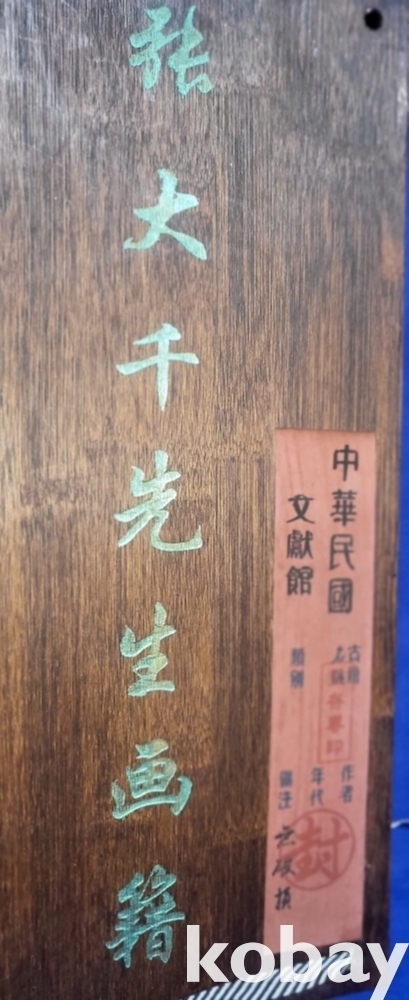 张大千先生画籍
中華民國
文獻館
古籍
名稱
類別
作者
年代
備注
封
kobay